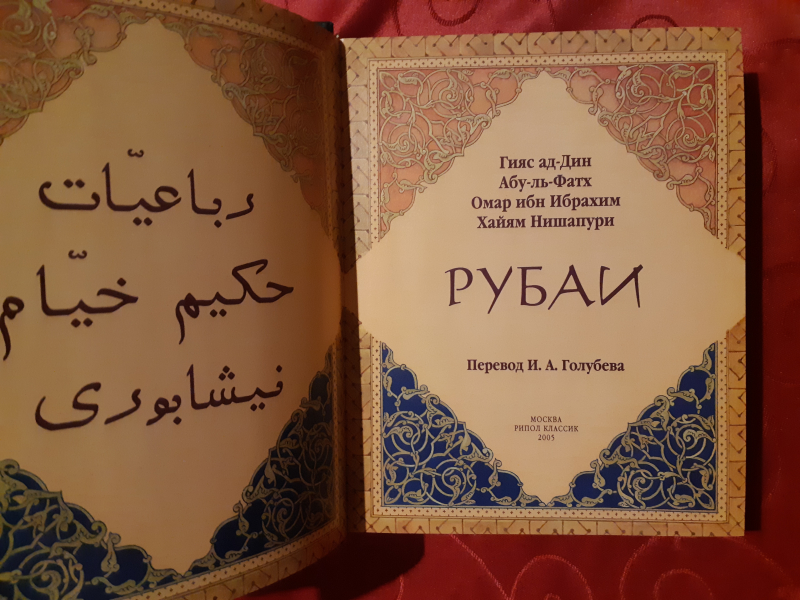 رباعیّات
حکیم خیّام
نیشابوری
Гияс ад-Дин
Абу-ль-Фатх
Омар ибн Ибрахим
Хайям Нишапури
РУБАИ
Перевод И. А. Голубева
МОСКВА
РИПОЛ КЛАССИК
2005